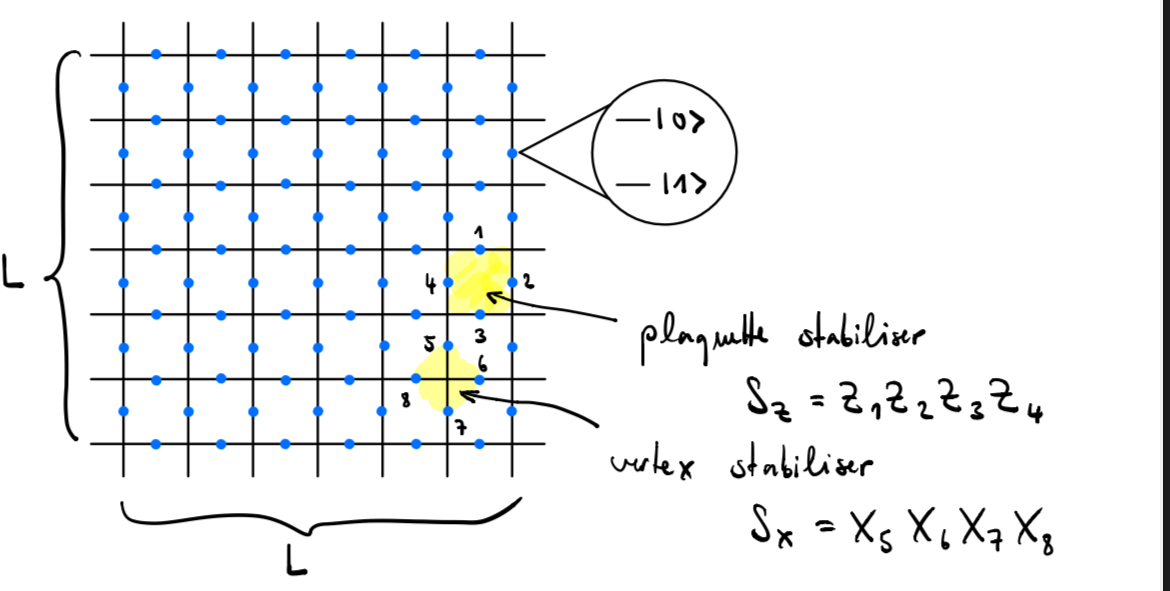 |0>
|1>
1
4
2
3
5
6
8
7
L
L
plaquette stabiliser
S_z = Z₁Z₂Z₃Z₄
vertex stabiliser
S_x = X₅X₆X₇X₈